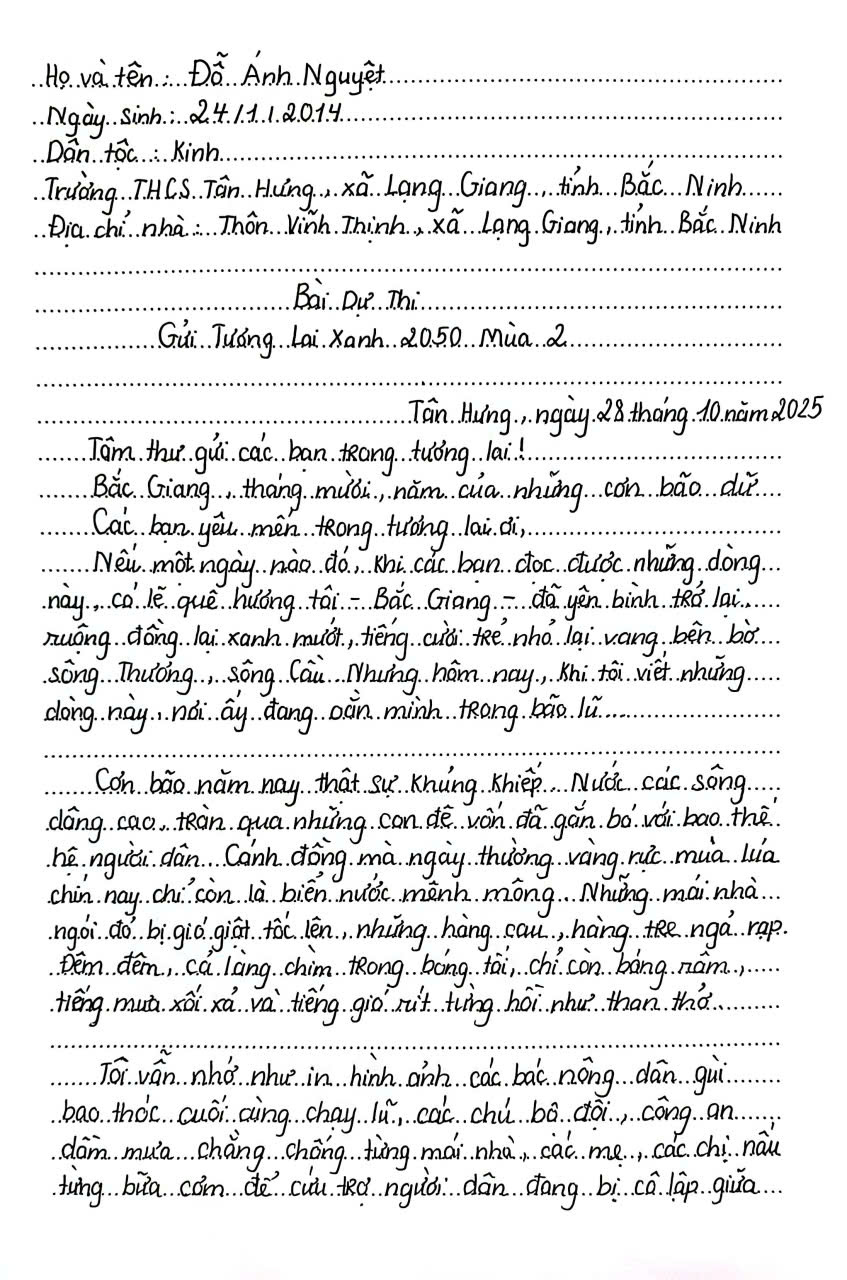 Họ và tên: Đỗ Ánh Nguyệt
Ngày sinh: 24/1/2014
Dân tộc: Kinh
Trường THCS Tân Hưng, xã Lạng Giang, tỉnh Bắc Ninh
Địa chỉ nhà: Thôn Vĩnh Thịnh, xã Lạng Giang, tỉnh Bắc Ninh
Bài Dự Thi
Gửi Tương Lai Xanh 2050 Mùa 2
Tân Hưng, ngày 28 tháng 10 năm 2025
Tâm thư gửi các bạn trong tương lai!
Bắc Giang, tháng mười, năm của những cơn bão dữ
Các bạn yêu mến trong tương lai ơi,
Nếu một ngày nào đó, khi các bạn đọc được những dòng
này, có lẽ quê hương tôi - Bắc Giang - đã yên bình trở lại,
ruộng đồng lại xanh mướt, tiếng cười trẻ nhỏ lại vang bên bờ
sông Thương, sông Cầu. Nhưng hôm nay, khi tôi viết những
dòng này, nơi ấy đang oằn mình trong bão lũ.
Cơn bão năm nay thật sự khủng khiếp. Nước các sông
dâng cao, tràn qua những con đê vốn đã gắn bó với bao thế
hệ người dân. Cánh đồng mà ngày thường vàng rực mùa lúa
chín nay chỉ còn là biển nước mênh mông. Những mái nhà
ngói đỏ bị gió giật tốc lên, những hàng cau, hàng tre ngả rạp.
Đêm đêm, cả làng chìm trong bóng tối, chỉ còn bóng rầm,
tiếng mưa xối xả và tiếng gió rít từng hồi như than thở.
Tôi vẫn nhớ như in hình ảnh các bác nông dân gùi
bao thóc cuối cùng chạy lũ, các chú bộ đội, công an
dầm mưa chằng chống từng mái nhà, các mẹ, các chị nấu
từng bữa cơm để cứu trợ người dân đang bị cô lập giữa